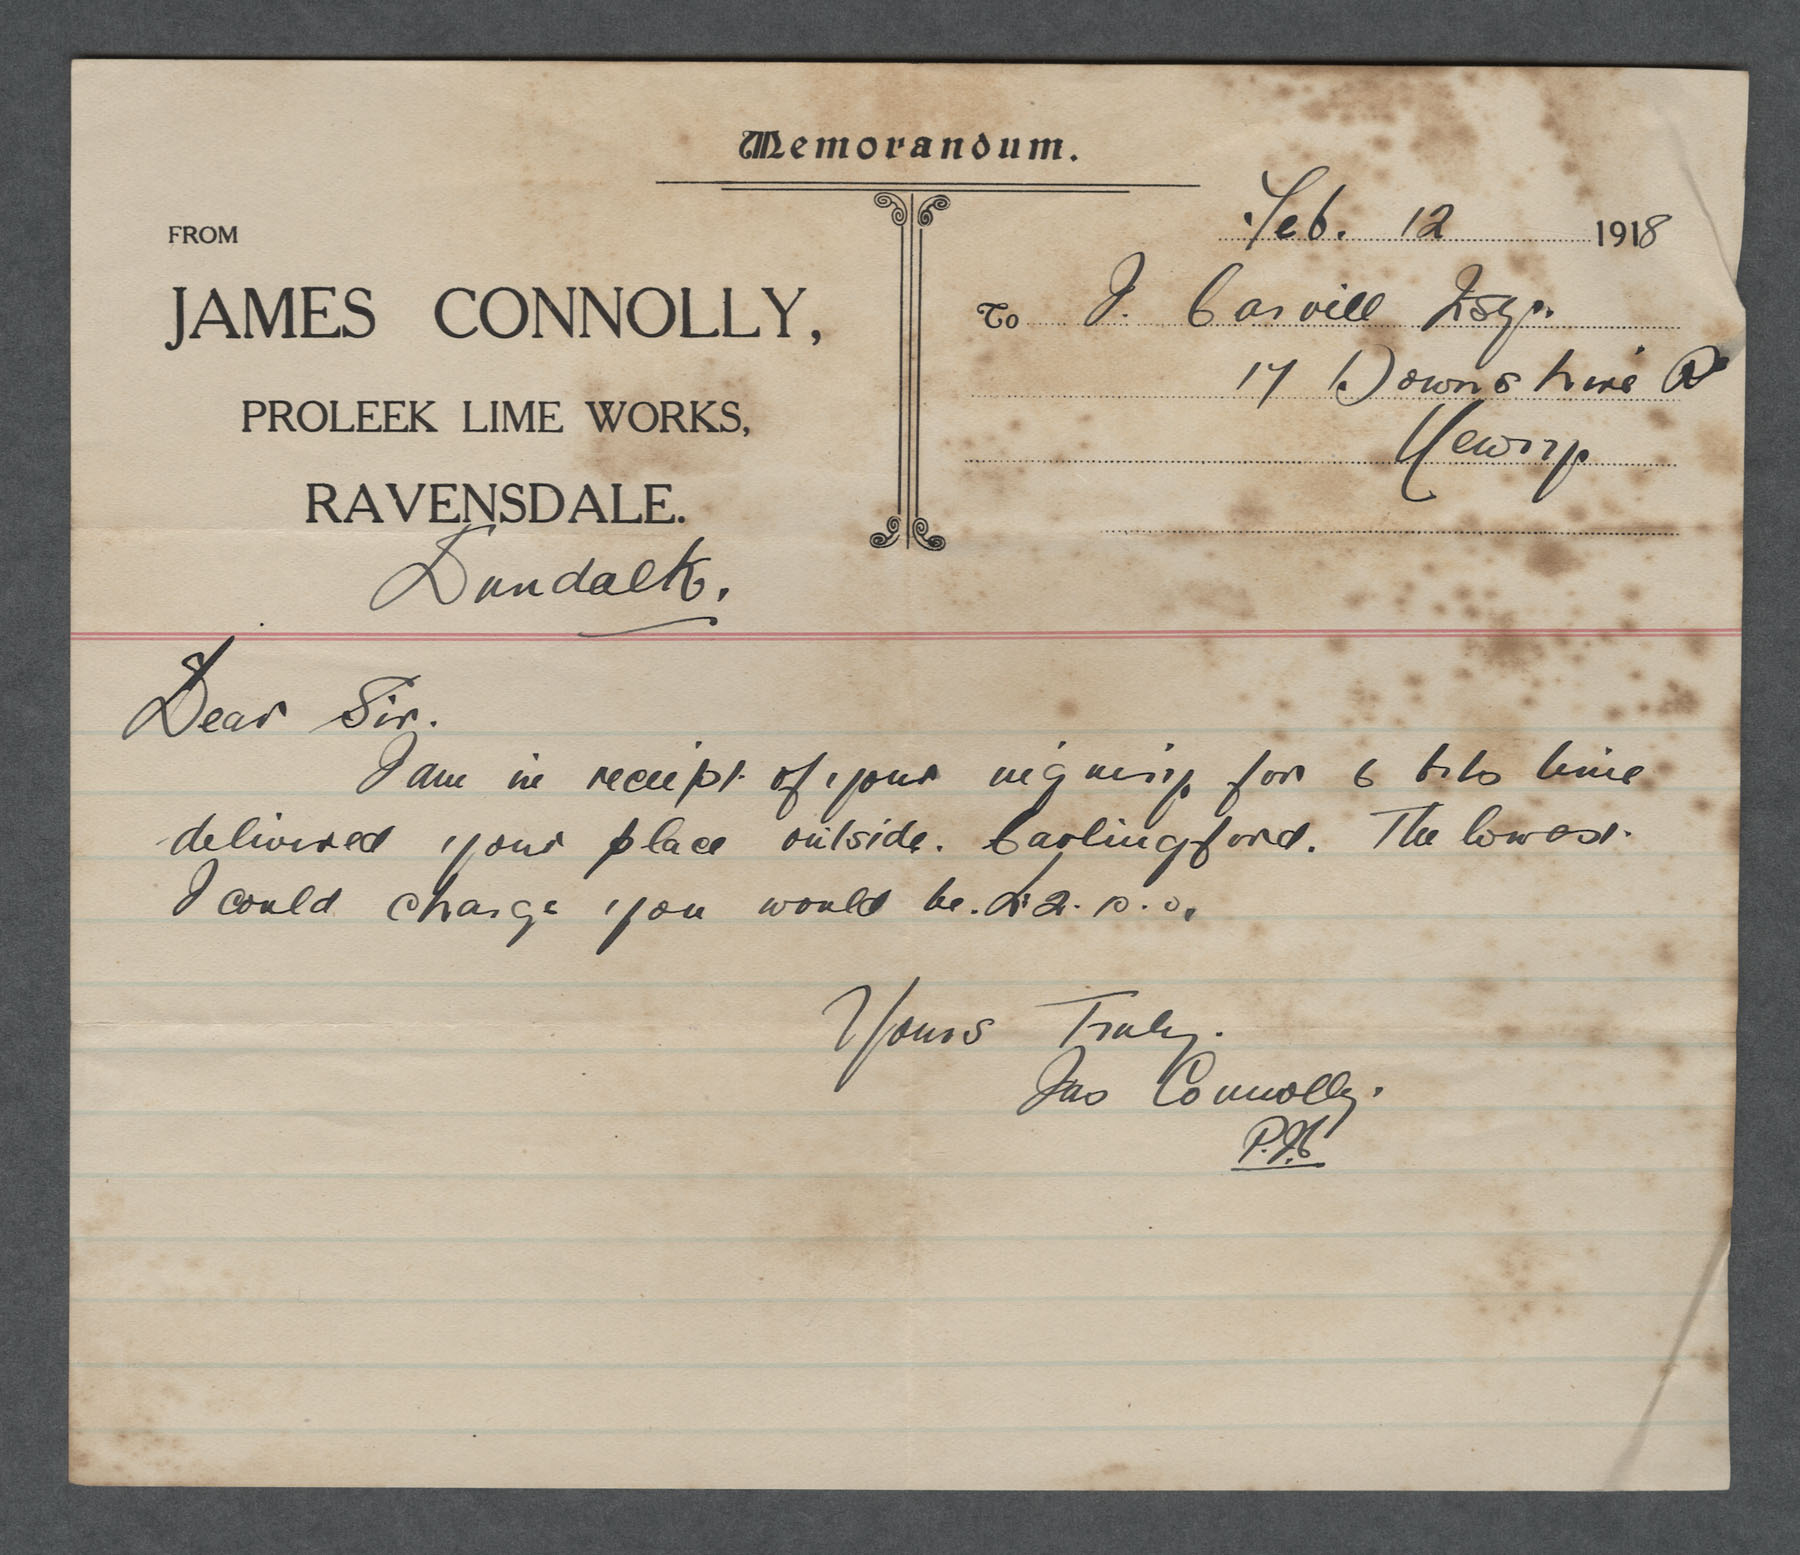 Memorandum.
Feb. 12 1918
FROM
JAMES CONNOLLY,
PROLEEK LIME WORKS,
RAVENSDALE.
Dundalk.
To J. Carvill Esqr.
17 Downshire Rd
Newry
Dear Sir.
I am in receipt of your inquiry for 6 brls lime
delivered your place outside. Carlingford. The lowest
I could charge you would be. £2. 10. 0.
Yours Truly.
Jas Connolly.